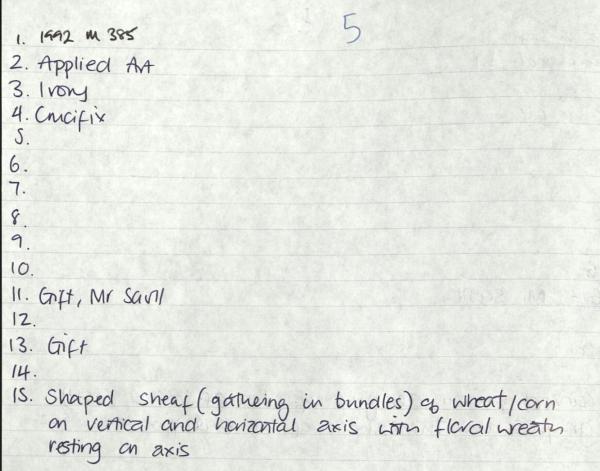 5
1. 1992 M 385
2. Applied Art
3. Ivory
4. Crucifix
5.
6.
7.
8.
9.
10.
11. Gift, Mr Savill
12.
13. Gift
14.
15. Shaped sheaf (gathering in bundles) of wheat/corn
on vertical and horizontal axis with floral wreath
resting on axis